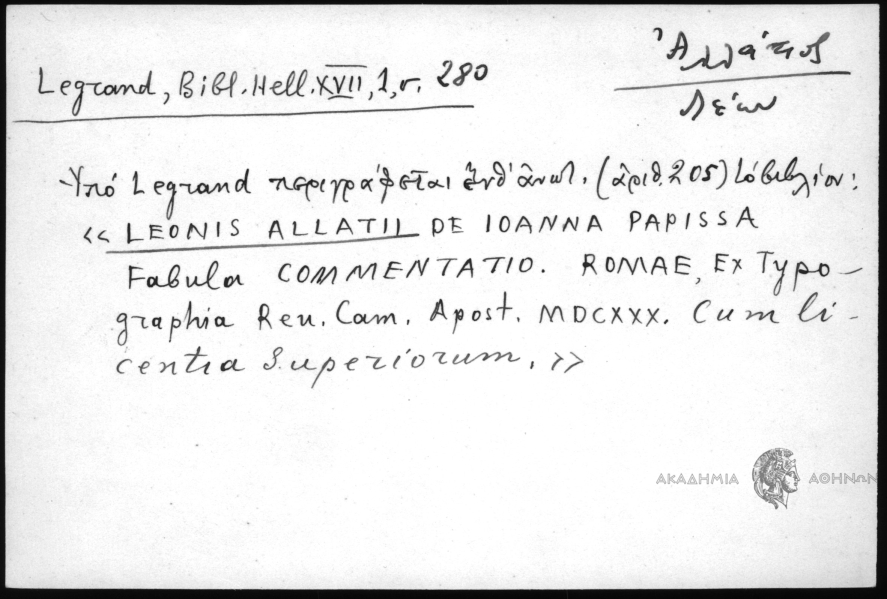 Legrand, Bibl. Hell. XVII, 1, σ. 280
Ἀλλάτιος
Λέων
Ὑπό Legrand περιγράφεται ἐνθ' ἀνωτ. (ἀριθ. 205) τό βιβλίον:
« LEONIS ALLATII DE IOANNA PAPISSA
Fabula COMMENTATIO. ROMAE, Ex Typo-
graphia Reu. Cam. Apost. MDCXXX. Cum li-
centia Superiorum. »
ΑΚΑΔΗΜΙΑ ΑΘΗΝΩΝ